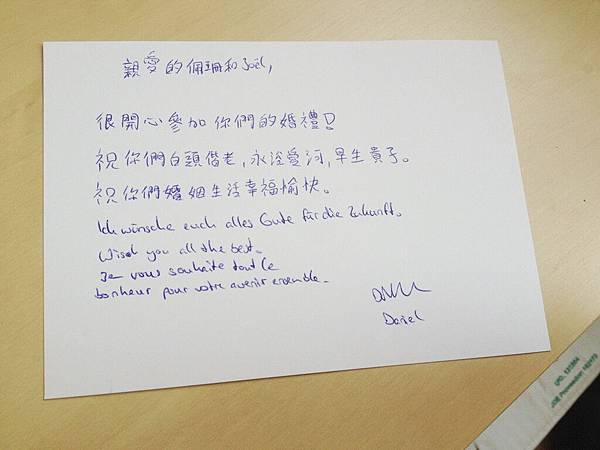 親愛的佩珊和Joël,
很開心參加你們的婚禮!
祝你們白頭偕老,永浴愛河,早生貴子。
祝你們婚姻生活幸福愉快。
Ich wünsche euch alles Gute für die Zukunft.
Wish you all the best.
Je vous souhaite tout le
bonheur pour votre avenir ensemble.
Daniel